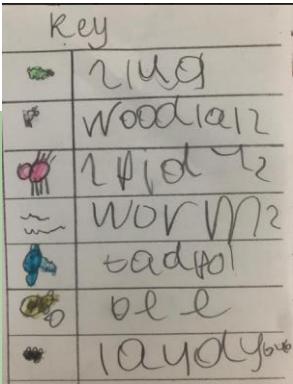 Key
slug
woodlais
spidys
worms
tadpol
bee
laydybug